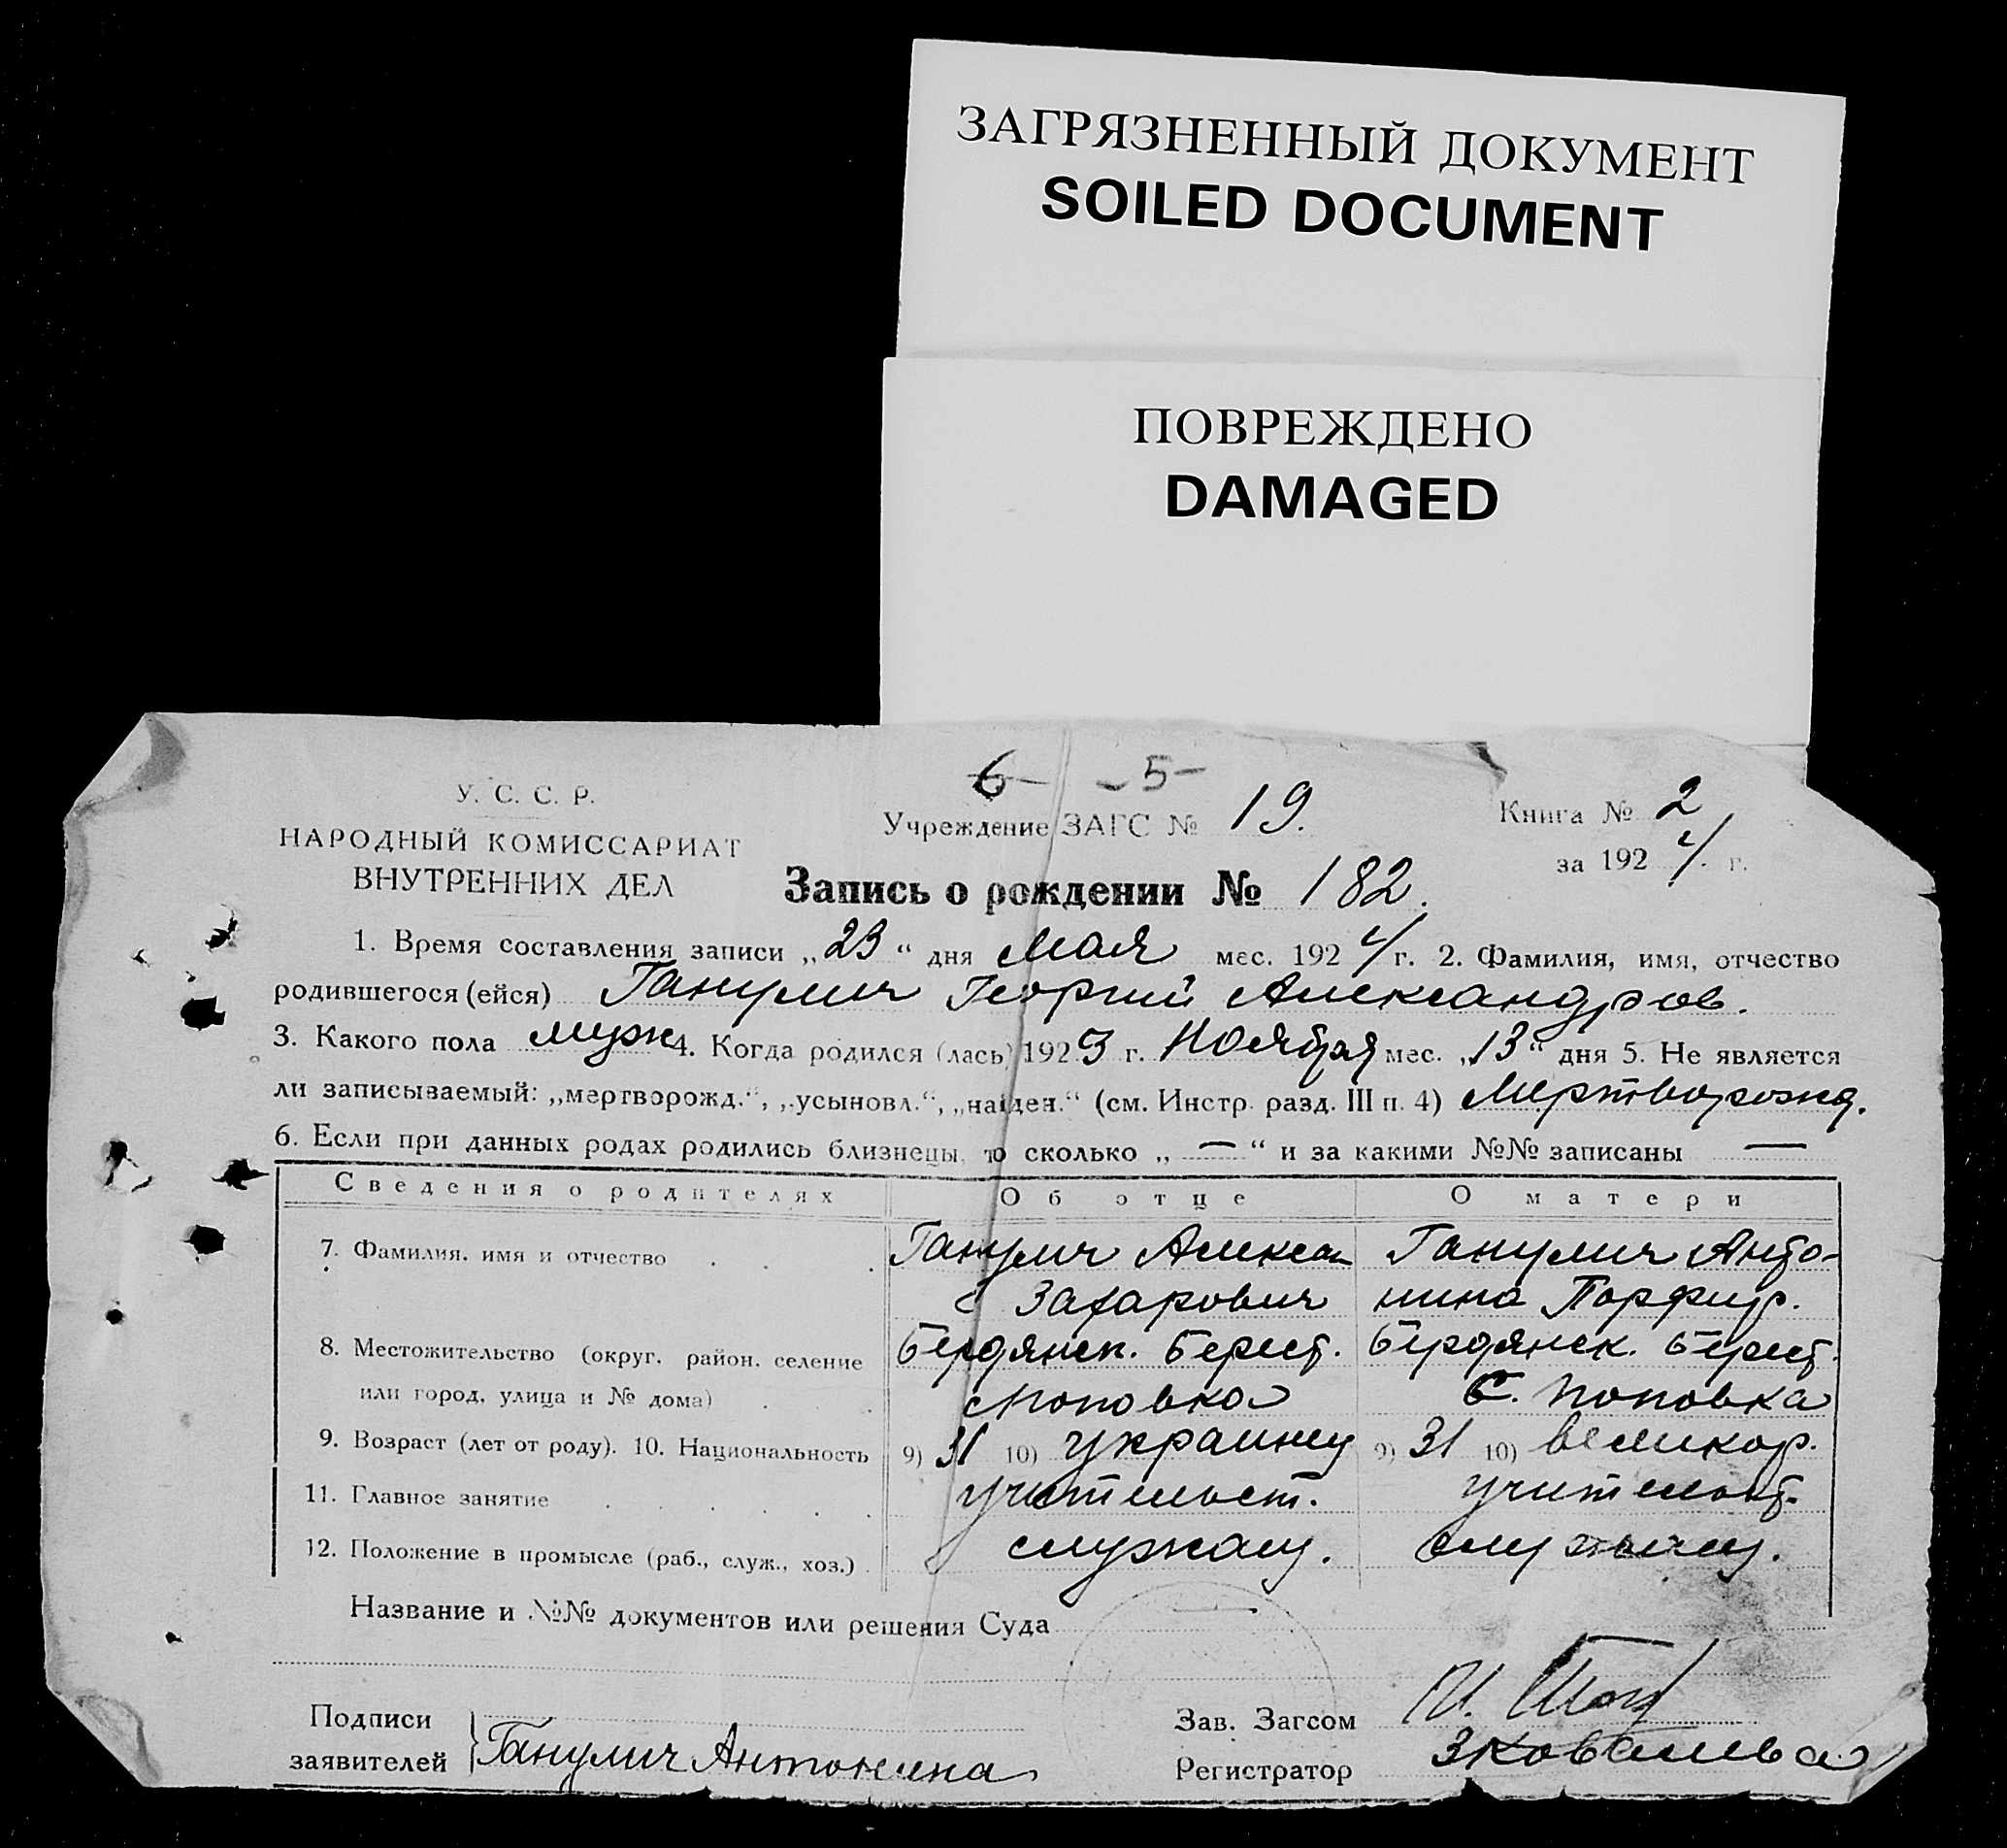 ЗАГРЯЗНЕННЫЙ ДОКУМЕНТ
SOILED DOCUMENT
ПОВРЕЖДЕНО
DAMAGED
6 - 5 -
У. С. С. Р.
НАРОДНЫЙ КОМИССАРИАТ
ВНУТРЕННИХ ДЕЛ
Учреждение ЗАГС № 19.
Книга № 2
за 1924 г.
Запись о рождении № 182.
1. Время составления записи „23“ дня мая мес. 1924 г. 2. Фамилия, имя, отчество
родившегося (ейся) Ганулич Георгий Александров.
3. Какого пола муж 4. Когда родился (лась) 1923 г. Ноября мес. „13“ дня 5. Не является
ли записываемый: „мертворожд.“, „усыновл.“, „найден.“ (см. Инстр. разд. III п. 4) Мертворожд.
6. Если при данных родах родились близнецы, то сколько „ — “ и за какими №№ записаны —
Сведения о родителях Об отце О матери
7. Фамилия, имя и отчество Ганулич Алексан Ганулич Анто-
Захарович нина Порфир.
8. Местожительство (округ, район, селение Бердянск. Берест. Бердянск. Берест.
или город, улица и № дома) Поповка с. Поповка
9. Возраст (лет от роду). 10. Национальность 9) 31 10) украинец 9) 31 10) великор.
11. Главное занятие учительст. учительст.
12. Положение в промысле (раб., служ., хоз.) служащ. служащ.
Название и №№ документов или решения Суда —
Подписи
заявителей Ганулич Антонина
Зав. Загсом
Регистратор ЗКовалева